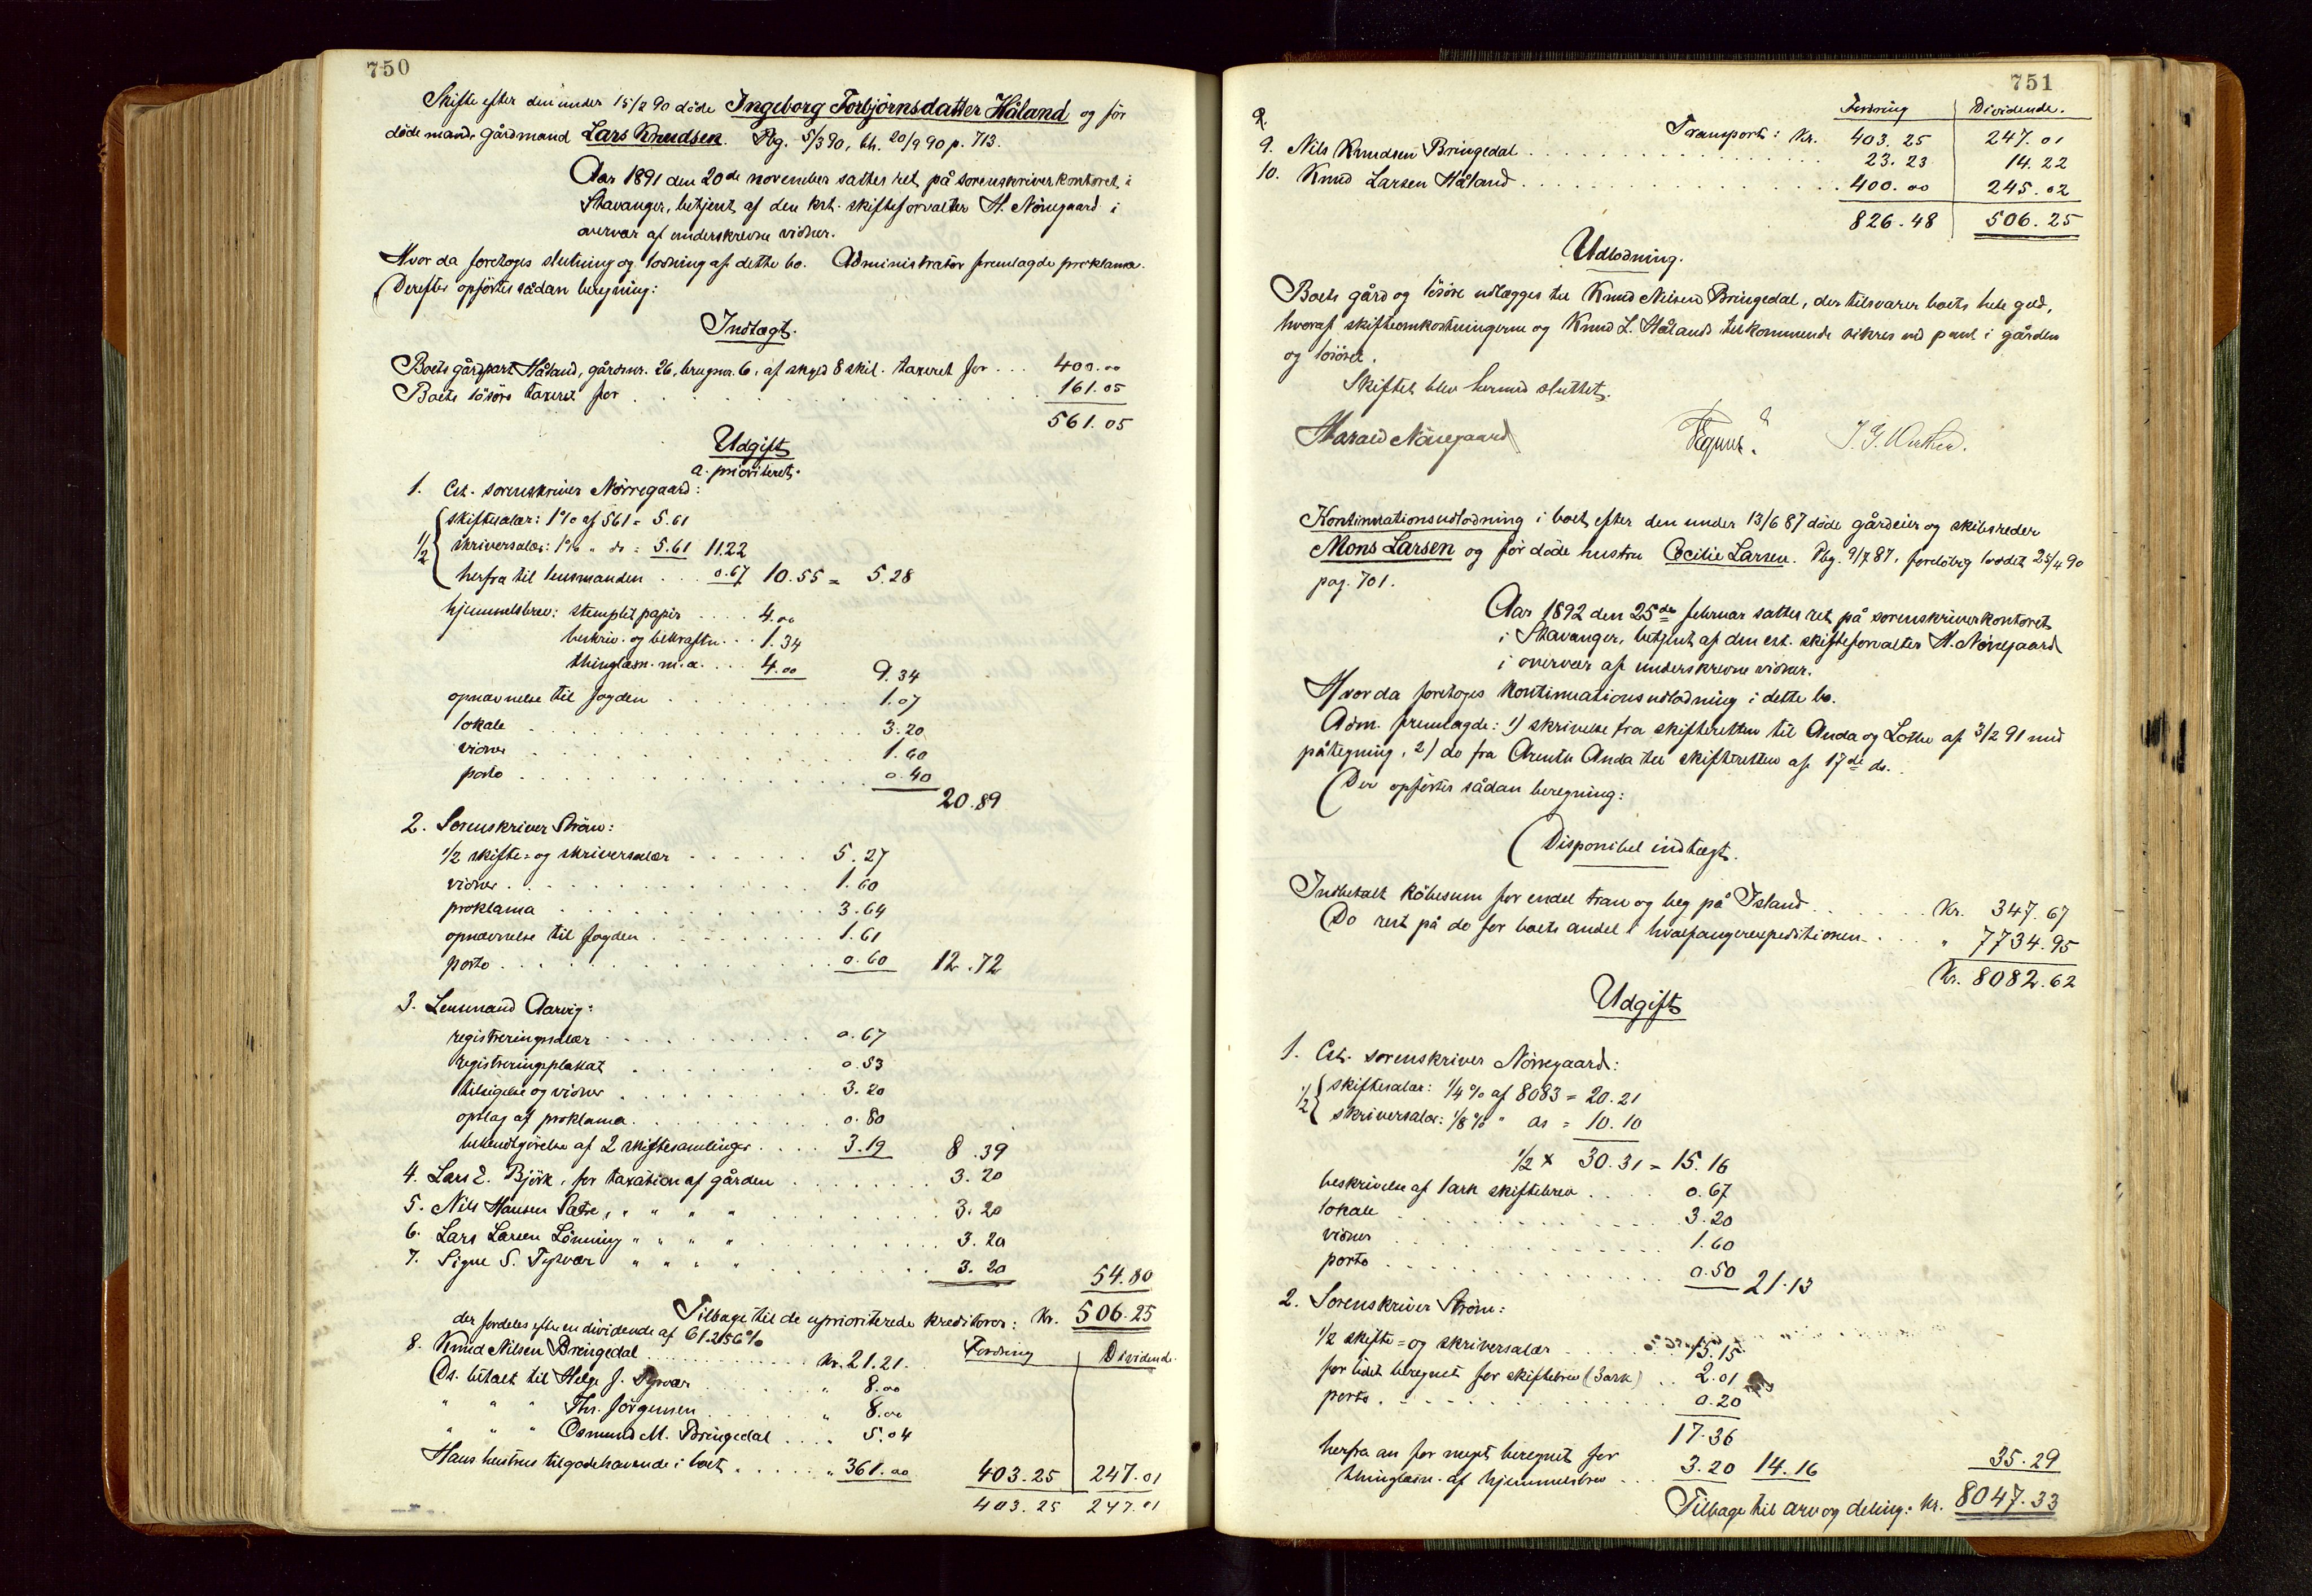 750
Skifte efter den under 15/2 90 döde Ingeborg Torbjörnsdatter Håland og før
döde mand, gårdmand Lars Knudsen. Rg. 5/3 90, bh. 20/9 90 p. 713.
Aar 1891 den 20de november sattes ret på sorenskriverkontoret i
Stavanger, betjent af den kst. skifteforvalter H. Nörregaard i
overvær af underskrevne vidner.
Hvorda foretoges slutning og lodning af dette bo. Administrator fremlagde proklama.
Derefter opførtes sådan beregning:
Indtægt.
Boets gårdpart Håland, gårdsnr. 26, brugsnr. 6, af skyld 8 skil. taxeret for ... 400.00
Boets lösöre taxeret for . . . 161.05
561.05
Udgift
a. prioriteret.
1. Cst. sorenskriver Nörregaard:
1/2 { skiftesalær: 1% af 561 = 5.61
skriversalær: 1% " do = 5.61 11.22
herfra til lensmanden ... 0.67 10.55 = 5.28
hjemmelsbrev: stemplet papir .... 4.00
beskriv. og bekræftn. .. 1.34
thinglæsn. m.a. ... 4.00 9.34
opnævnelse til fogden . . . 1.07
lokale . . . 3.20
vidner . . . 1.60
porto . . . 0.40
20.89
2. Sorenskriver Ström:
1/2 skifte- og skriversalær . . . 5.27
vidner . . . 1.60
proklama . . . 3.64
opnævnelse til fogden . . . 1.61
porto . . . 0.60 12.72
3. Lensmand Aarvig:
registreringssalær . . . 0.67
registreringsplakat . . . 0.53
tilsigelse og vidner . . . 3.20
opslag af proklama . . . 0.80
bekendtgörelse af 2 skiftesamlinger .... 3.19 8.39
4. Lars L. Björk, for taxation af gården . . . 3.20
5. Nils Hansen Sætre, " " " " . . . 3.20
6. Lars Larsen Lönning " " " " . . . 3.20
7. Signe S. Tysvær " " " " . . . 3.20
54.80
Tilbage til de uprioriterede kreditorer: Kr. 506.25
der fordeles efter en dividende af 61.256%
Fordring Dividende
8. Knud Nilsen Bringedal . . . Kr. 21.21
Do. betalt til Helge J. Tysvær . . . " 8.00
" " " Thr. Jörgensen . . . " 8.00
" " " Osmund M. Bringedal .... 5.04
Hans hustrus tilgodehavende i boet . . . " 361.00 403.25 247.01
403.25 247.01
751
Fordring Dividende.
Transport: Kr. 403.25 247.01
9. Nils Knudsen Bringedal . . . 23.23 14.22
10. Knud Larsen Håland . . . 400.00 245.02
826.48 506.25
Udlodning.
Boets gård og lösöre udlægges til Knud Nilsen Bringedal, der tilsvarer boets hele gjeld,
hvoraf skifteomkostningerne og Knud L. Hålands tilkommende sikres ved pant i gården
og lösöret.
Skiftet blev hermed sluttet.
Harald Nörregaard
Kontinuationsudlodning i boet efter den under 13/6 87 döde gårdeier og skibsreder
Mons Larsen og før døde hustru Cecilie Larsen. Rg. 9/7 87, foreløbig loddet 25/4 90
pag. 701.
Aar 1892 den 25de februar sattes ret på sorenskriverkontoret
i Stavanger, betjent af den cst. skifteforvalter H. Nörregaard
i overvær af underskrevne vidner.
Hvorda foretoges kontinuationsudlodning i dette bo.
Adm. fremlagde: 1) skrivelse fra skifteretten til Anda og Lothe af 3/2 91 med
påtegning, 2) do fra Arentz Anda til skifteretten af 17de ds.
Der opførtes sådan beregning:
Disponibel indtægt.
Indbetalt köbesum for endel tran og beg på Island . . . Kr. 347.67
Do rest på do for boets andel i hvalfangerexpeditionen . . . " 7734.95
Kr. 8082.62
Udgift
1. Cst. sorenskriver Nörregaard:
1/2 { skiftesalær: 1/4% af 8083 = 20.21
skriversalær: 1/8% " do = 10.10
1/2 × 30.31 = 15.16
beskrivelse af 1 ark skiftebrev .... 0.67
lokale . . . 3.20
vidner . . . 1.60
porto . . . 0.50 21.13
2. Sorenskriver Ström:
1/2 skifte- og skriversalær . . . 15.15
for lidet beregnet for skiftebrev (3 ark) .. 2.01
porto . . . 0.20
17.36
herfra an for meget beregnet for
thinglæsn. af hjemmelsbrev ... 3.20 14.16 35.29
Tilbage til arv og deling: Kr. 8047.33